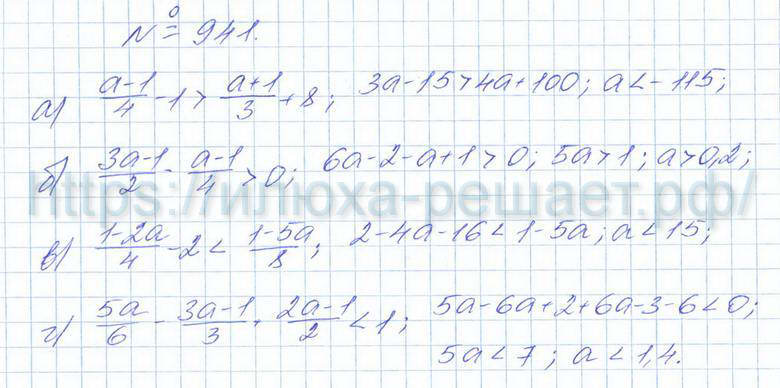 № 941.
а) (a-1)/4 - 1 > (a+1)/3 + 8; 3a-15>4a+100; a<-115;
б) (3a-1)/2 - (a-1)/4 > 0; 6a-2-a+1>0; 5a>1; a>0,2;
https://илюха-решает.рф/
в) (1-2a)/4 - 2 < (1-5a)/8; 2-4a-16<1-5a; a<15;
г) 5a/6 - (3a-1)/3 + (2a-1)/2 < 1; 5a-6a+2+6a-3-6<0;
5a<7; a<1,4.